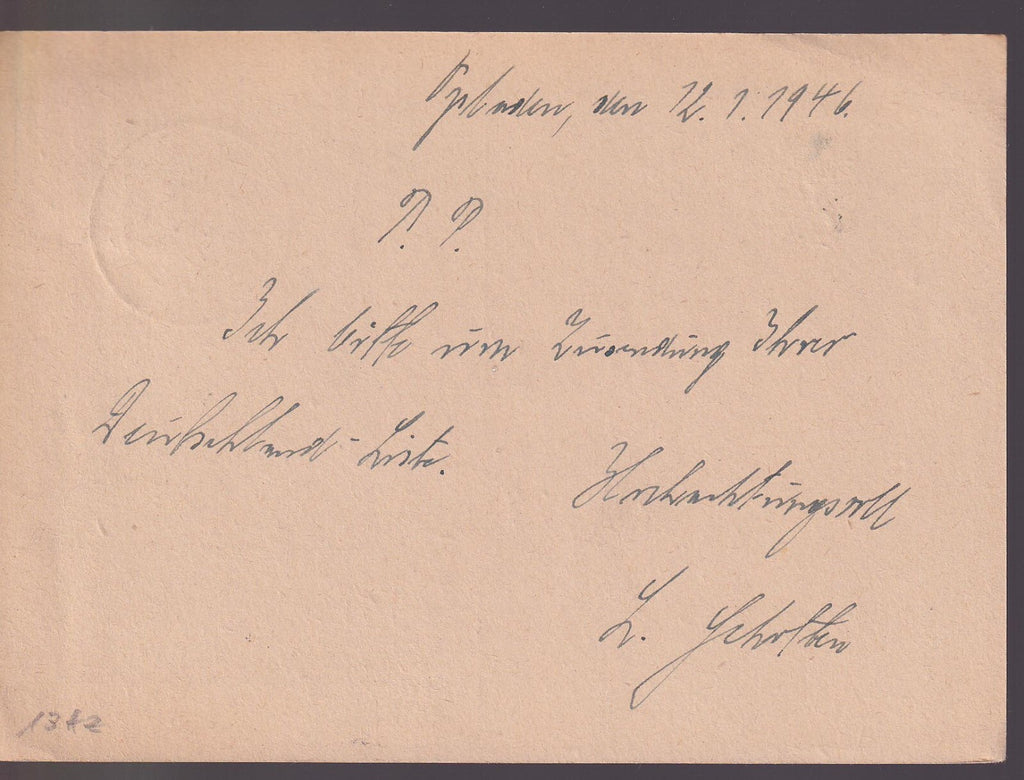 Opladen, den 12. 1. 1946.
P. P.
Ich bitte um Zusendung Ihrer
Deutschland-Liste.
Hochachtungsvoll
L. Scholten